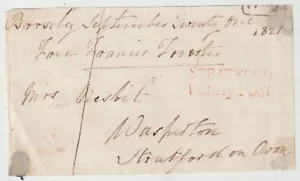 Broseley September Twenty One
1821
Free Francis Forester
Mrs Nesbit
STRATFORD
Penny Post
Wasperton
Stratford on Avon